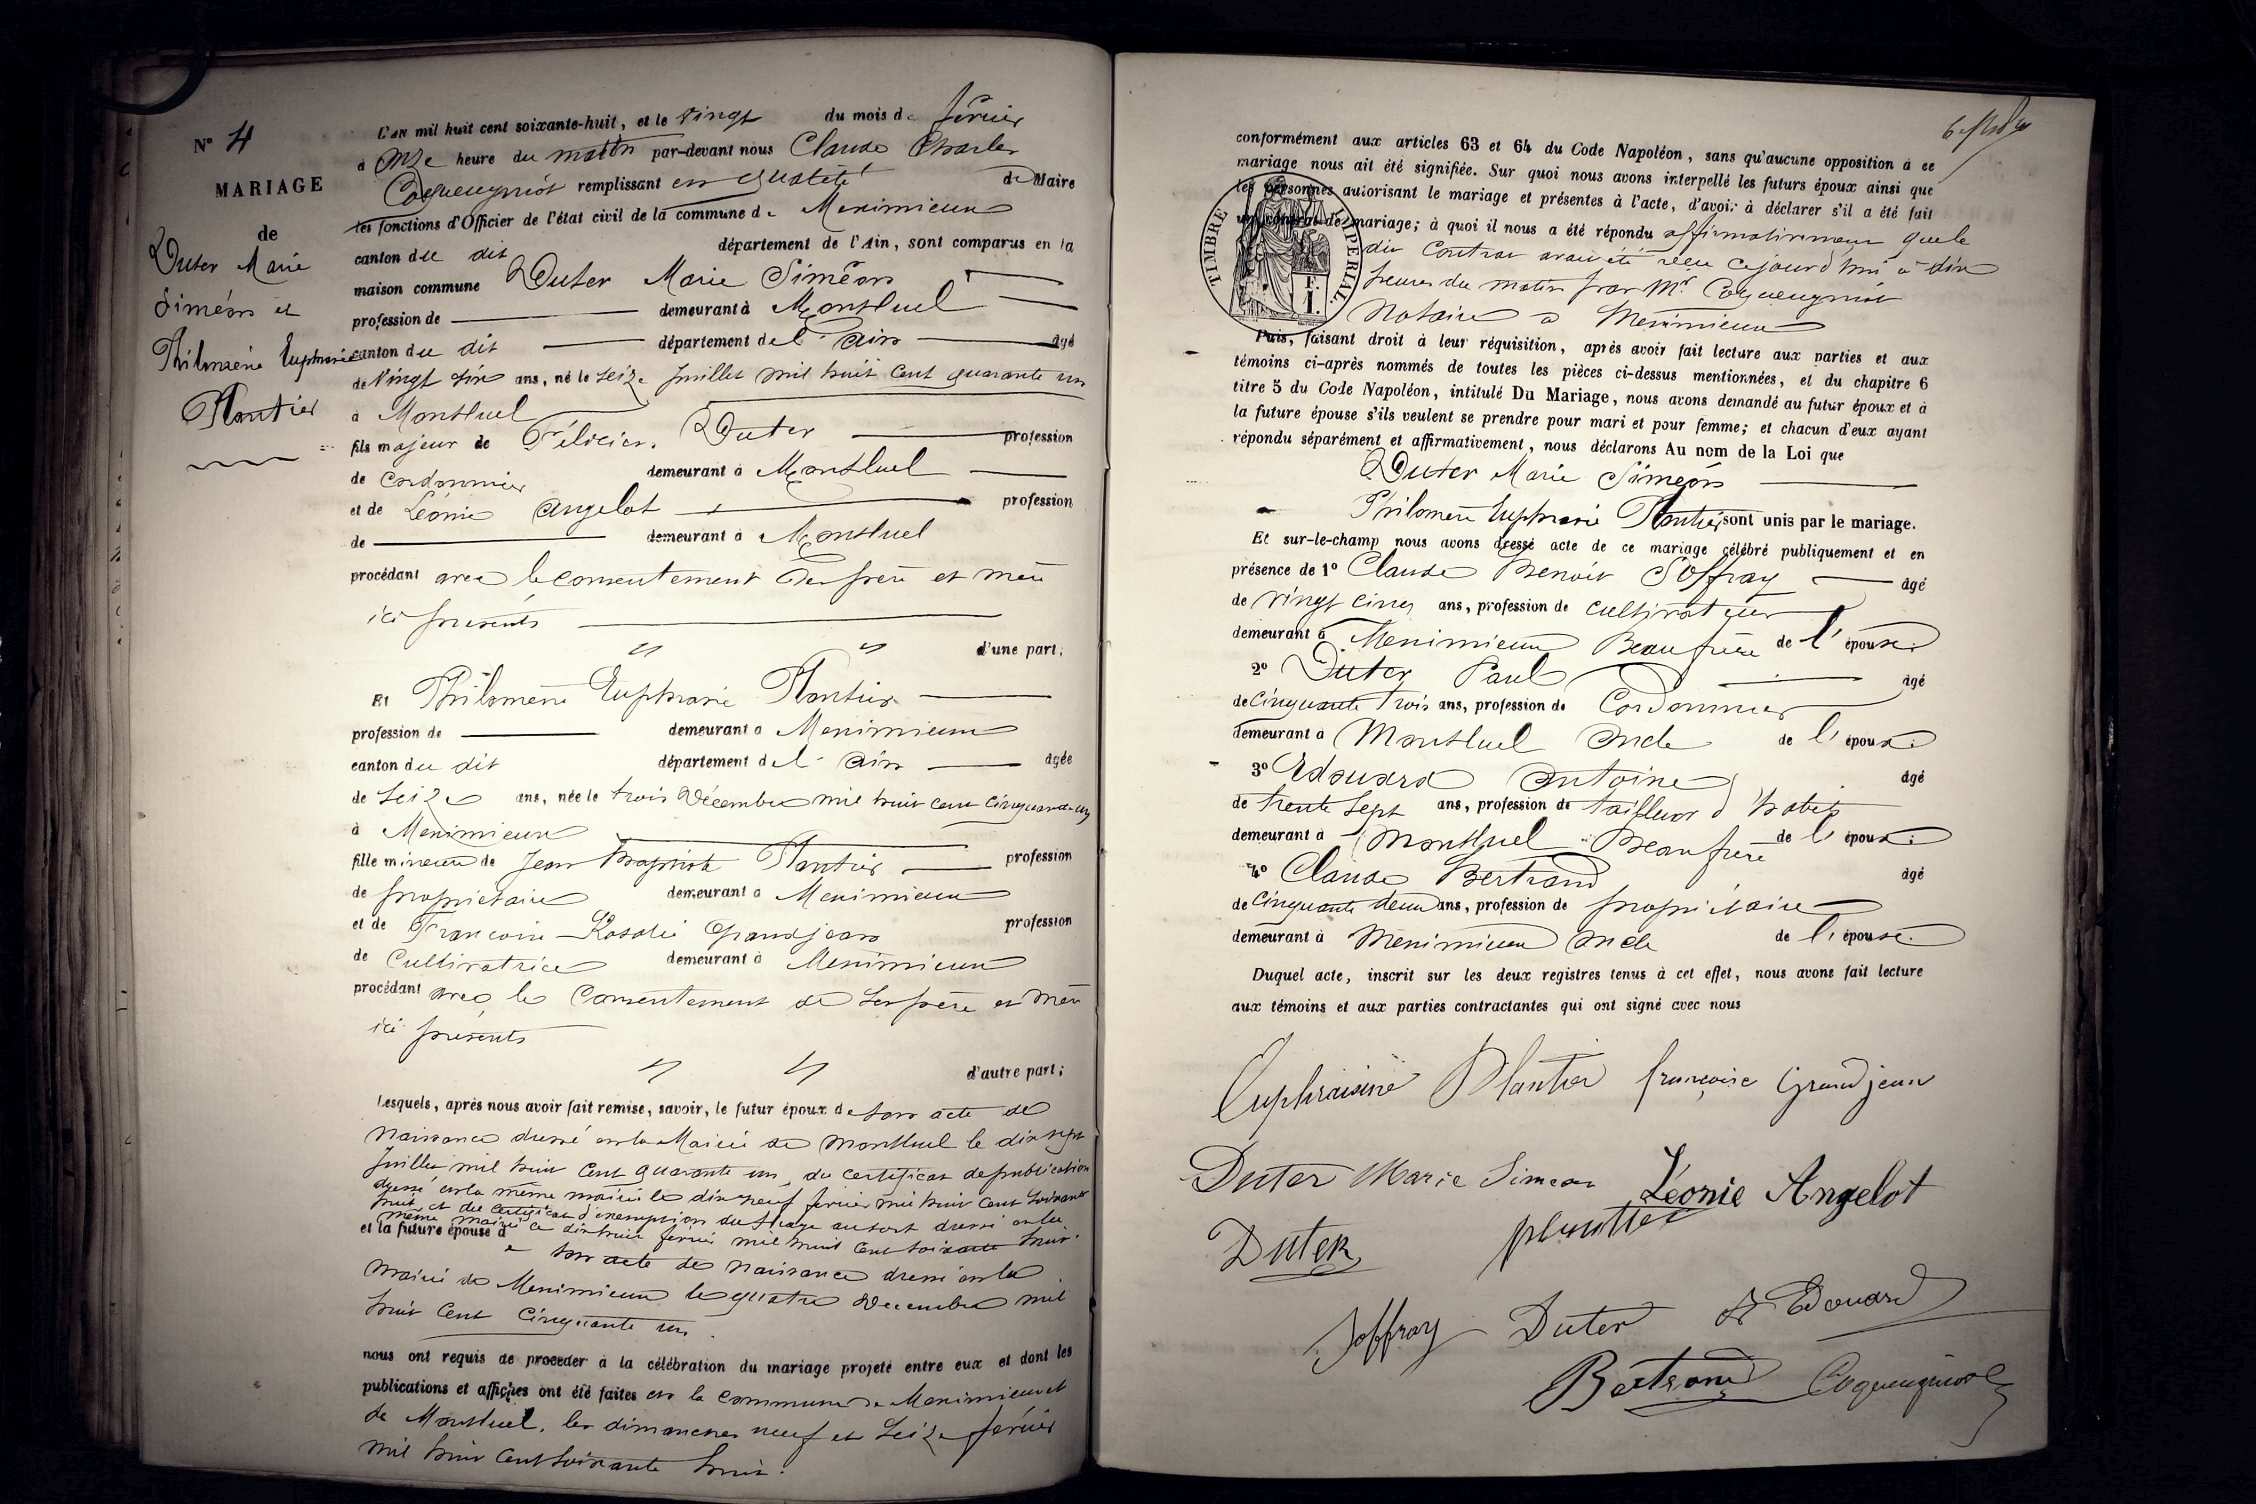 N° 4
MARIAGE
de
Duter Marie
Siméon et
Philomène Euphrasie
Plantier
L'an mil huit cent soixante-huit, et le vingt du mois de février
à onze heure du matin par-devant nous Claude Charles
Coqueugniot remplissant en qualité de Maire
les fonctions d'Officier de l'état civil de la commune de Meximieux
canton du dit département de l'Ain, sont comparus en la
maison commune Duter Marie Siméon
profession de demeurant à Montluel
canton du dit département de l'Ain âgé
de vingt six ans, né le seize juillet mil huit cent quarante un
à Montluel
fils majeur de Félicien Duter profession
de cordonnier demeurant à Montluel
et de Léonie Angelot profession
de demeurant à Montluel
procédant avec le consentement des père et mère
ici présents
d'une part;
Et Philomène Euphrasie Plantier
profession de demeurant à Meximieux
canton du dit département de l'Ain âgée
de seize ans, née le trois Décembre mil huit cent cinquante un
à Meximieux
fille mineure de Jean Baptiste Plantier profession
de propriétaire demeurant à Meximieux
et de Françoise Rosalie Grandjean profession
de Cultivatrice demeurant à Meximieux
procédant avec le consentement de ses père et mère
ici présents
d'autre part;
Lesquels, après nous avoir fait remise, savoir, le futur époux de son acte de
naissance dressé en la Mairie de Montluel le dix sept
Juillet mil huit cent quarante un, du certificat de publication
dressé en la même mairie le dix neuf février mil huit cent soixante
huit et du certificat d'exemption du tirage au sort dressé en la
même mairie ce dix huit février mil huit cent soixante huit.
et la future épouse d
e son acte de naissance dressé en la
mairie de Meximieux le quatre Décembre mil
huit cent cinquante un.
nous ont requis de procéder à la célébration du mariage projeté entre eux et dont les
publications et affiches ont été faites en la commune de Meximieux et
de Montluel, les dimanches neuf et seize février
mil huit cent soixante huit.
conformément aux articles 63 et 64 du Code Napoléon, sans qu'aucune opposition à ce
mariage nous ait été signifiée. Sur quoi nous avons interpellé les futurs époux ainsi que
les personnes autorisant le mariage et présentes à l'acte, d'avoir à déclarer s'il a été fait
un contrat de mariage; à quoi il nous a été répondu affirmativement que le
dit contrat avait été reçu cejourd'hui à dix
heures du matin par Mr. Coqueugniot
Notaire à Meximieux
TIMBRE IMPÉRIAL.
Puis, faisant droit à leur réquisition, après avoir fait lecture aux parties et aux
témoins ci-après nommés de toutes les pièces ci-dessus mentionnées, et du chapitre 6
titre 5 du Code Napoléon, intitulé Du Mariage, nous avons demandé au futur époux et à
la future épouse s'ils veulent se prendre pour mari et pour femme; et chacun d'eux ayant
répondu séparément et affirmativement, nous déclarons Au nom de la Loi que
Duter Marie Siméon
Philomène Euphrasie Plantier sont unis par le mariage.
Et sur-le-champ nous avons dressé acte de ce mariage célébré publiquement et en
présence de 1° Claude Benoit Joffray âgé
de vingt cinq ans, profession de cultivateur
demeurant à Meximieux Beaufrère de l'épouse.
2° Duter Paul âgé
de cinquante trois ans, profession de Cordonnier
demeurant à Montluel oncle de l'époux.
3° Edouard Antoine âgé
de trente sept ans, profession de tailleur d'habits
demeurant à Montluel Beaufrère de l'époux.
4° Claude Bertrand âgé
de cinquante deux ans, profession de propriétaire
demeurant à Meximieux oncle de l'épouse.
Duquel acte, inscrit sur les deux registres tenus à cet effet, nous avons fait lecture
aux témoins et aux parties contractantes qui ont signé avec nous
Euphraisine Plantier françoise Grandjean
Duter Marie Simeon Léonie Angelot
Duter plantier
Joffray Duter A Edouard
Bertrand Coqueugniot